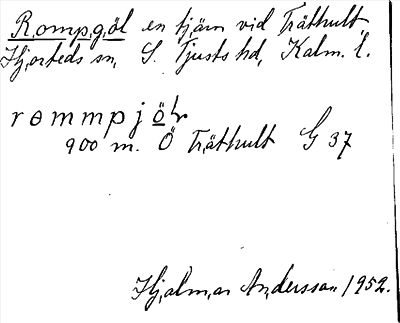 Rompgöl en tjärn vid Träthult,
Hjorteds sn, S. Tjusts hd, Kalm. l.
rommpjöl
900 m. Ö Träthult G 37
Hjalmar Andersson 1952.